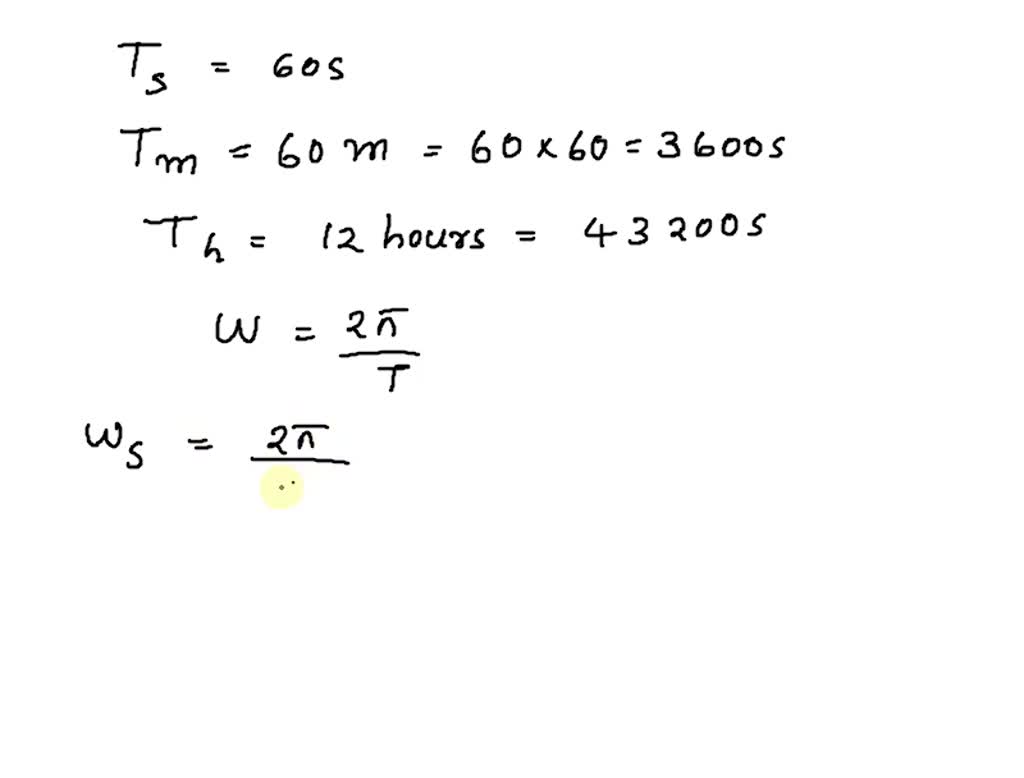 Ts = 60s
Tm = 60 m = 60 x 60 = 3600s
Th = 12 hours = 43200s
W = 2π / T
Ws = 2π